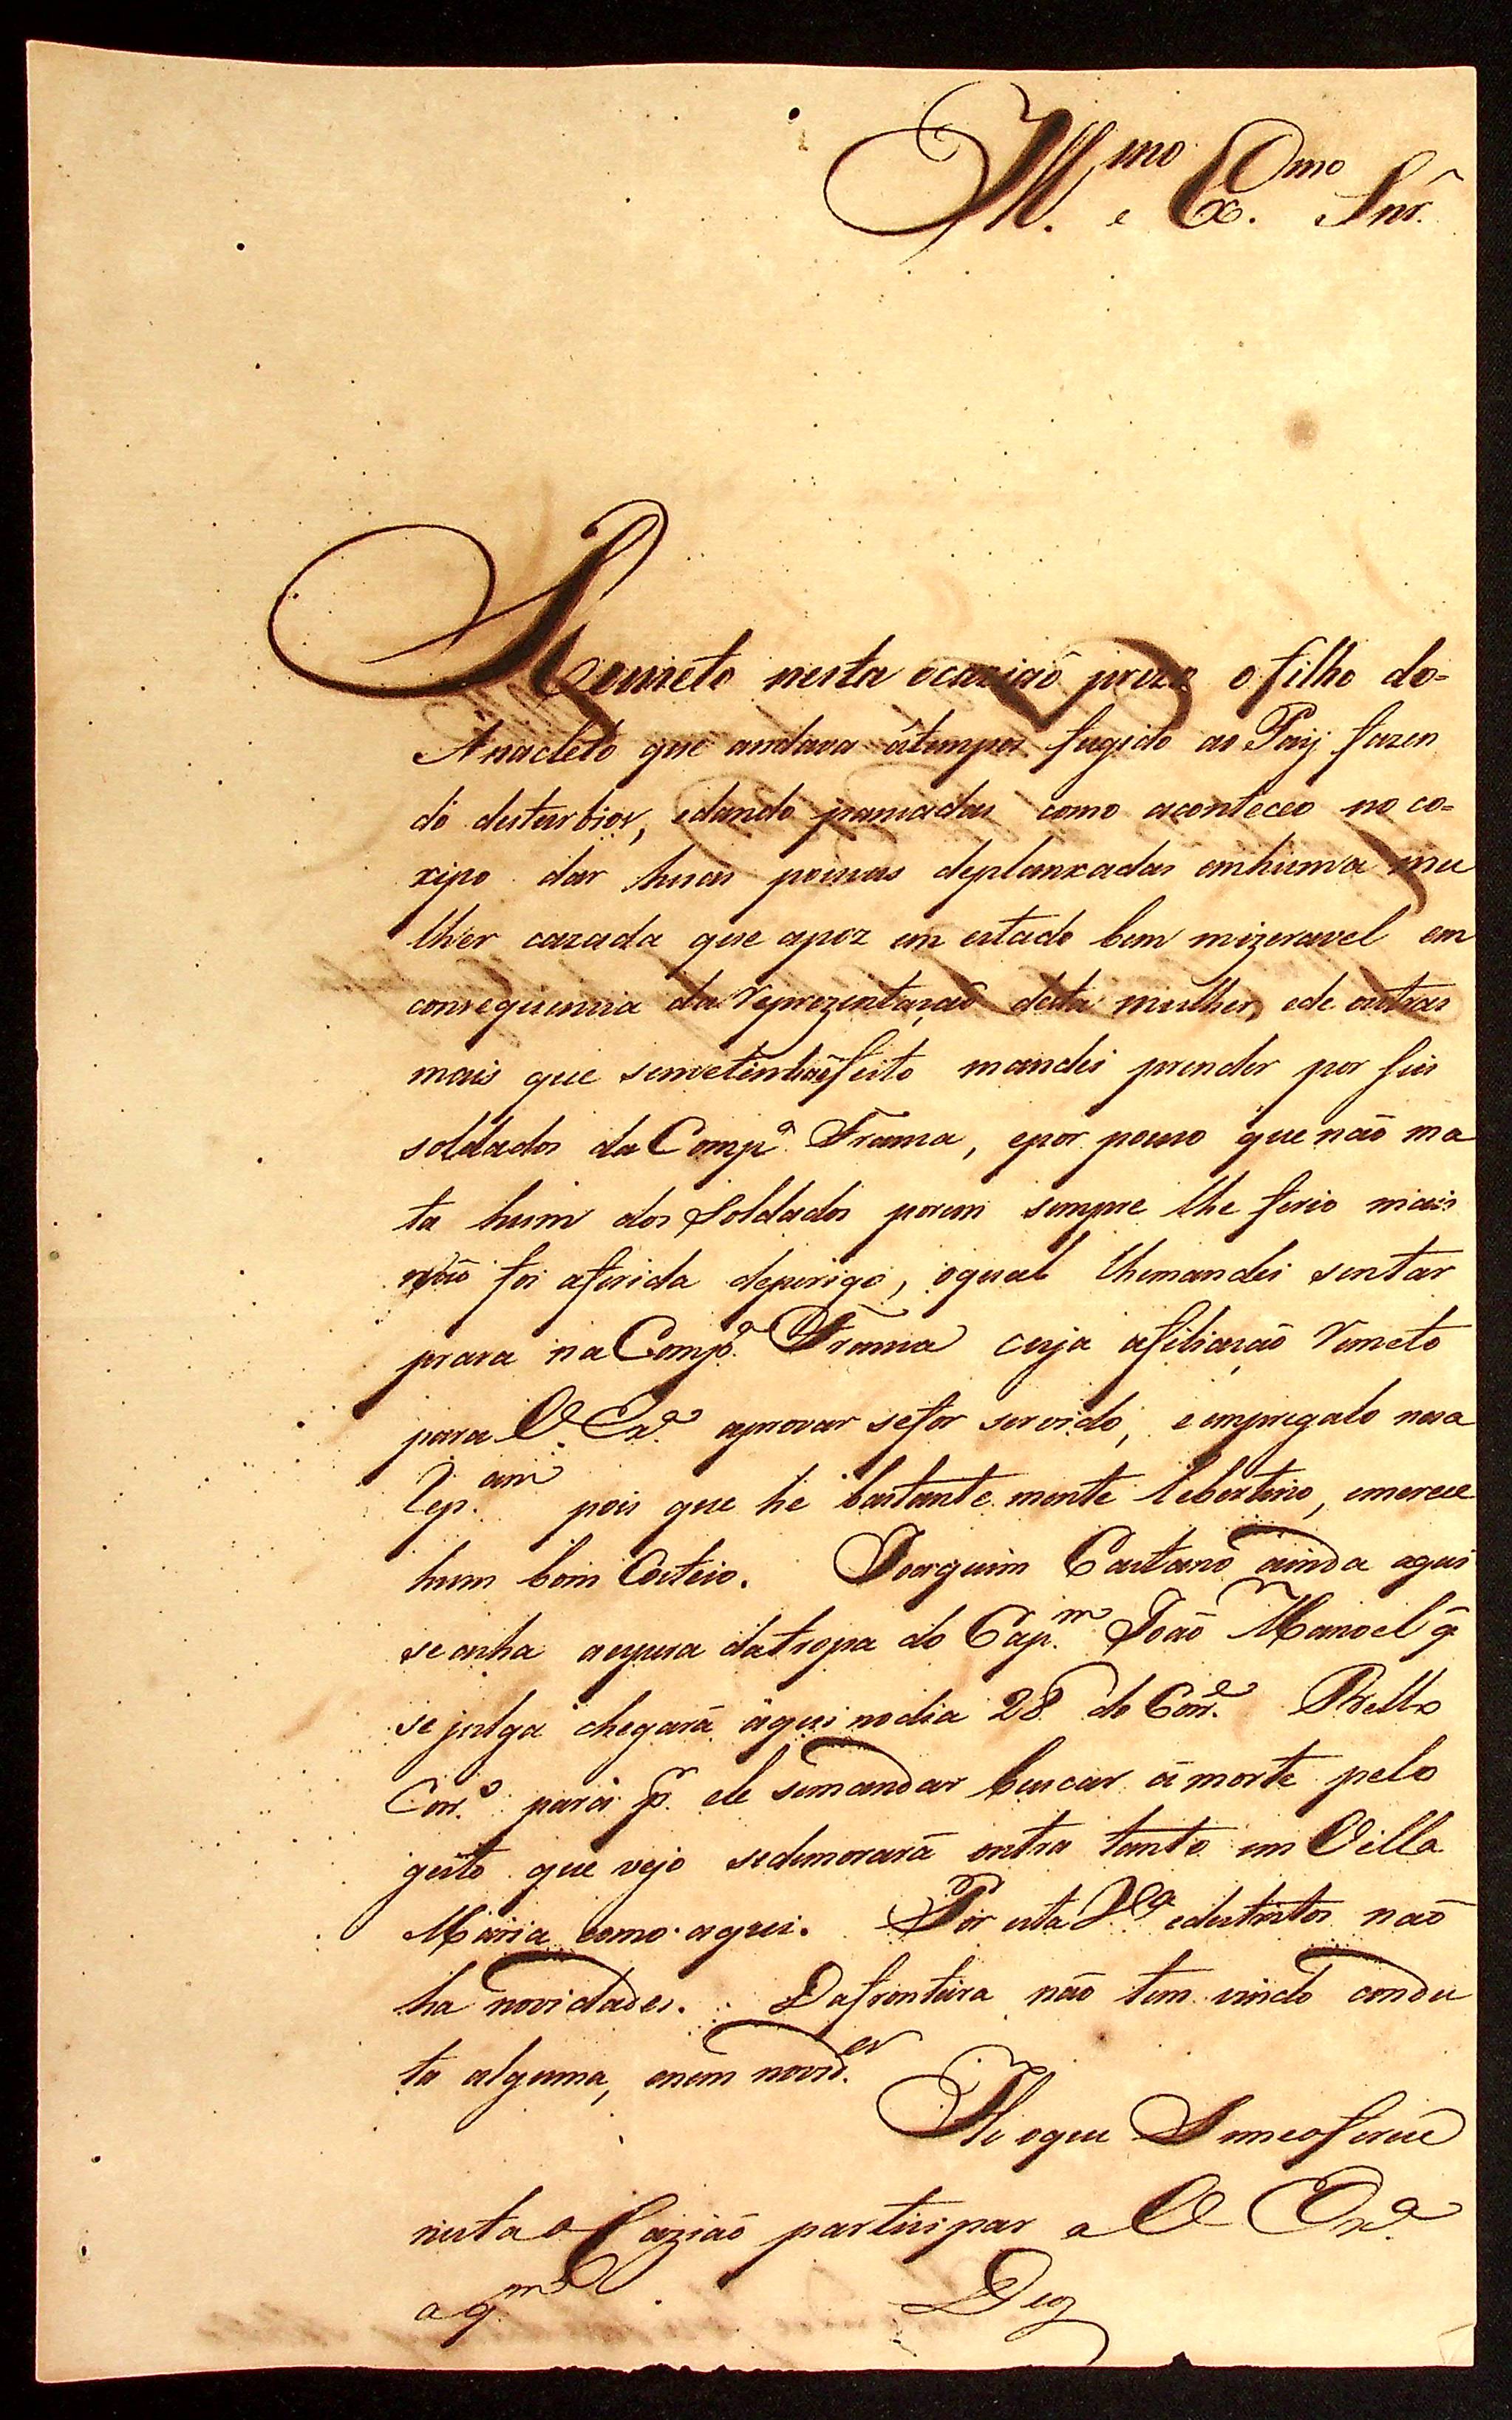 Ill.mo e Ex.mo Snr.
Remeto nesta ocazião prezo o filho do=
Anacleto que andava átempos fugido ao Paij fazen
do desturbios, edando pancadas como aconteceo no co=
xipo dar huas poucas deplanxadas emhuma mu
lher cazada que apoz em estado bem mizeravel em
consequencia da reprezentação desta mulher, ede outras
mais que semetinhão feito mandei prender por seis
soldados da Comp.a Franca, epor pouco que não ma
ta hum dos Soldados porem sempre lhe ferio mais
não foi aferida deperigo, oqual lhemandei sentar
praca na Comp.a Franca cuja afiliação remeto
para V. Ex.a aprovar sefor servido, e empregalo nesa
Leg.am pois que he bastante mente lebertino, emerece
hum bom Casteio. Joaquim Caetano ainda aqui
se axha aespera datropa do Cap.m João Manoel q̃
se julga chegará áqui nodia 28 do Corr.e Bello
Corr.o para p.r ele semandar buscar á morte pelo
geito que vejo sedemorará entra tanto em Villa
Maria como aqui. Por esta V.a edestritos não
ha novidades. Dafronteira não tem vindo condu
ta alguma, enem novid.es
He oque Semeoferece
nesta oCazião partisipar a V Ex.a
a q.m Deos